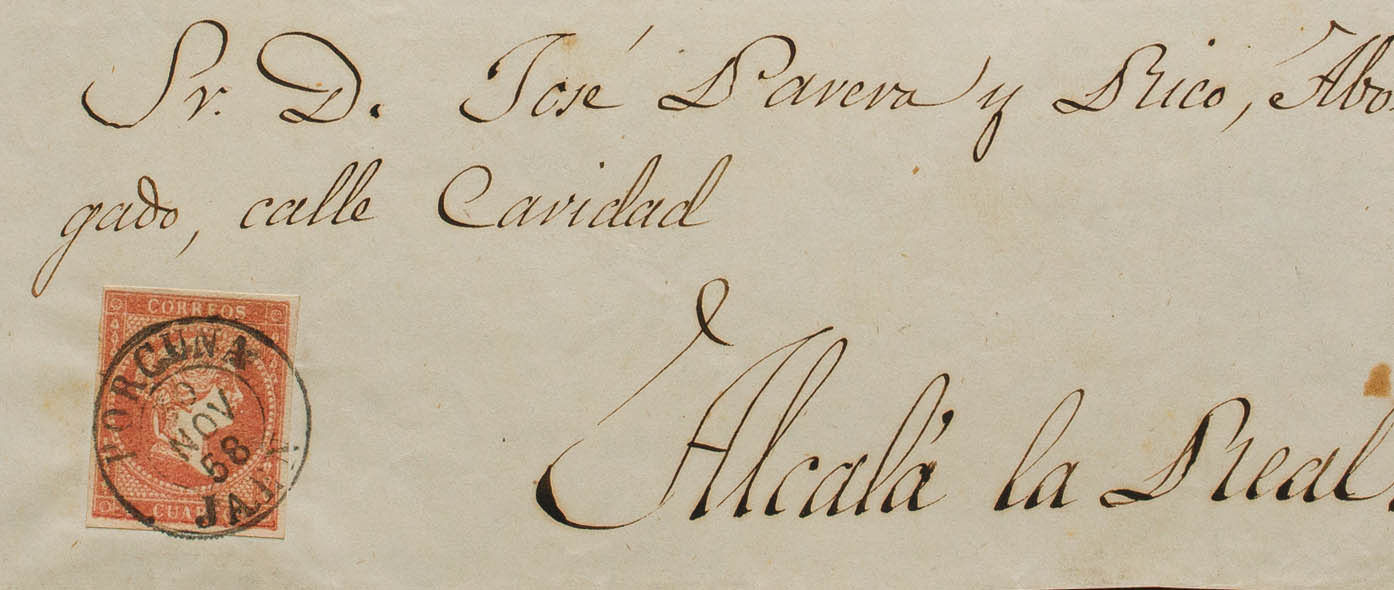 Sr. D. José Parera y Rico, Abo
gado, calle Caridad
Alcalá la Real
CORREOS
PORCUNA
NOV
58
JAEN